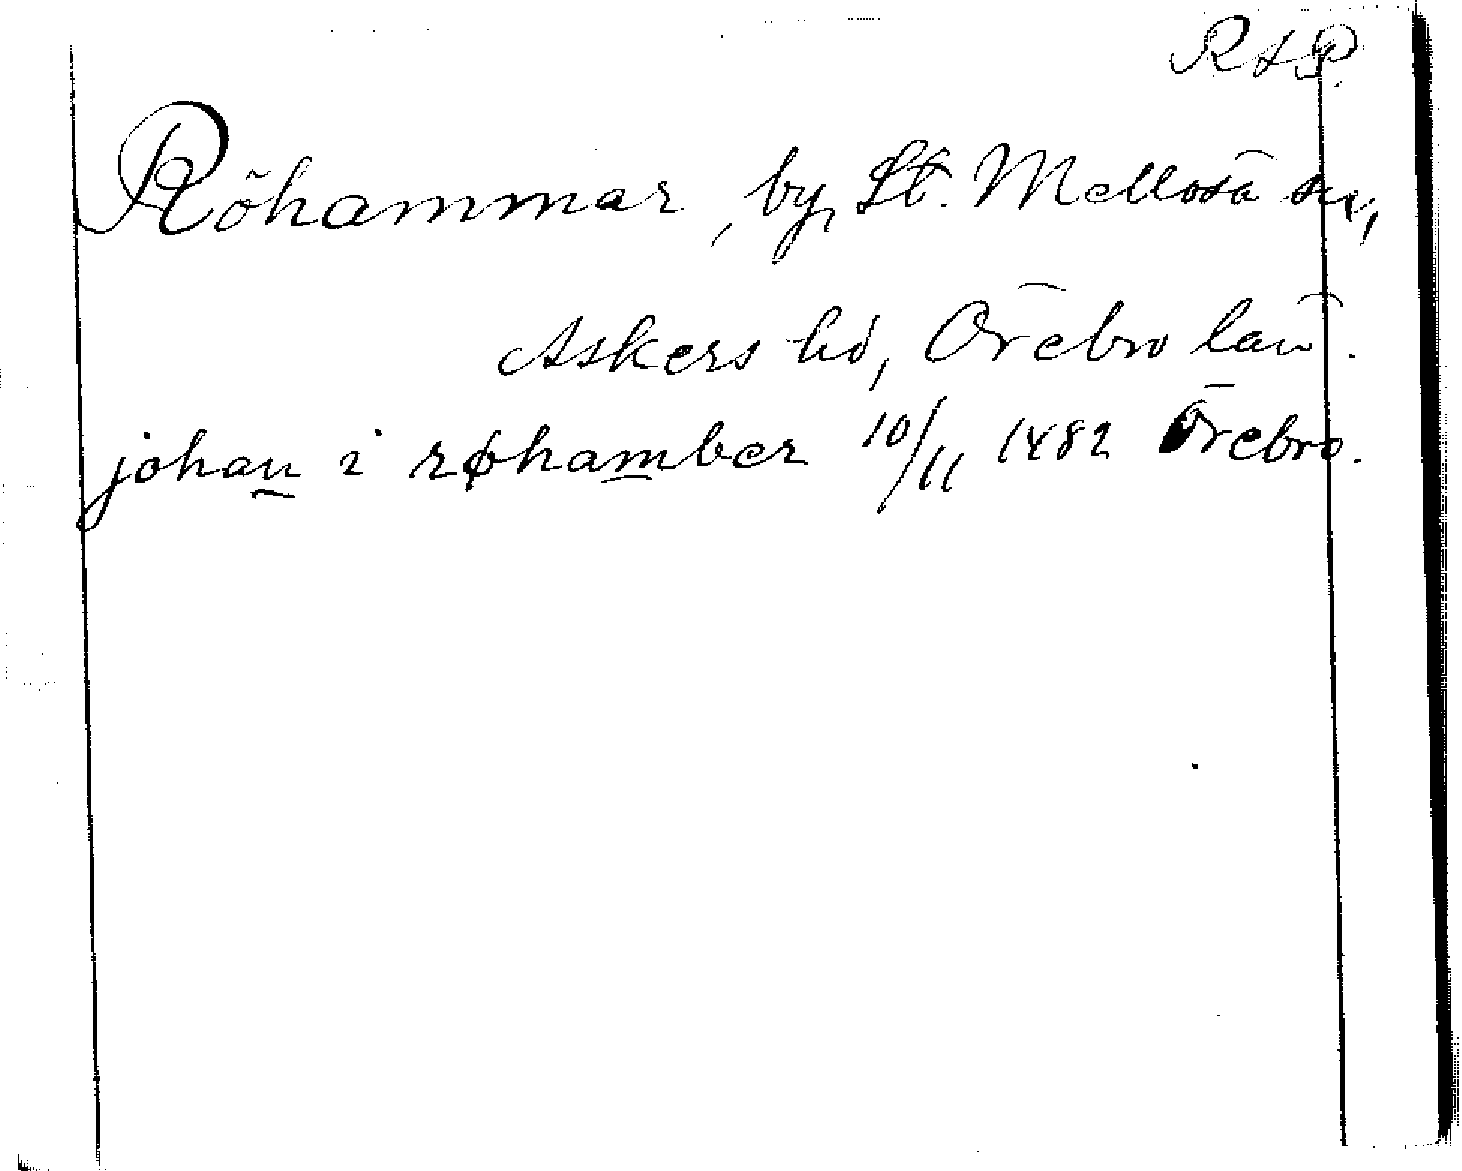 RAP.
Röhammar, by, St. Mellösa sn,
Askers hd, Örebro län.
johan i røhamber 10/11 1482 Örebro.